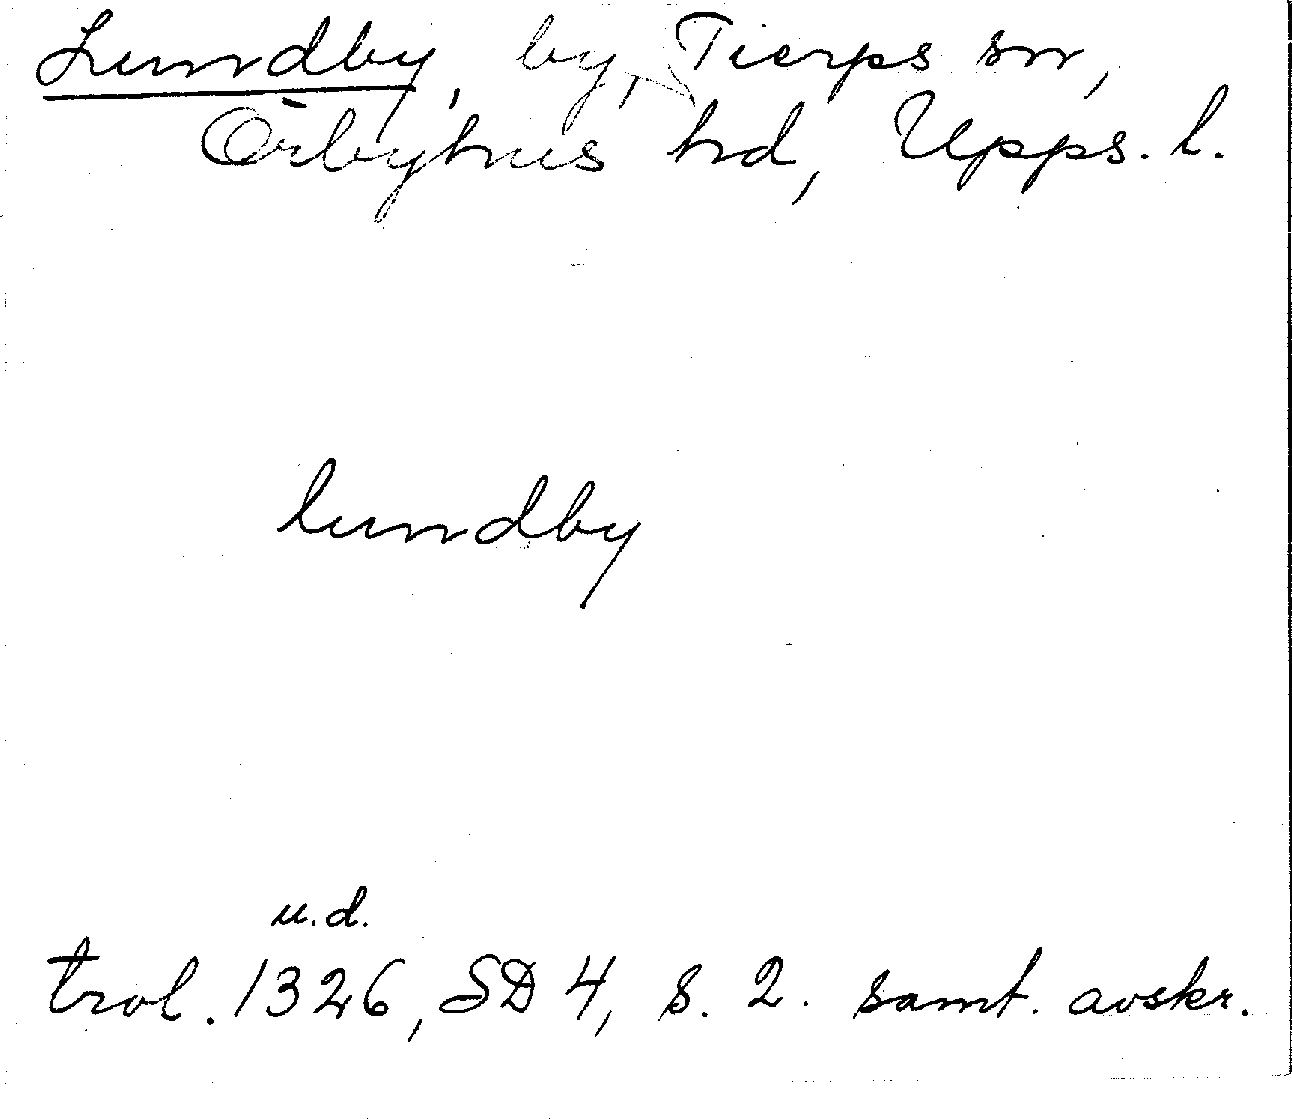 Lundby, by, Tierps sn,
Örbyhus hd, Upps. l.
lundby
u.d.
trol. 1326, SD 4, s. 2. samt. avskr.